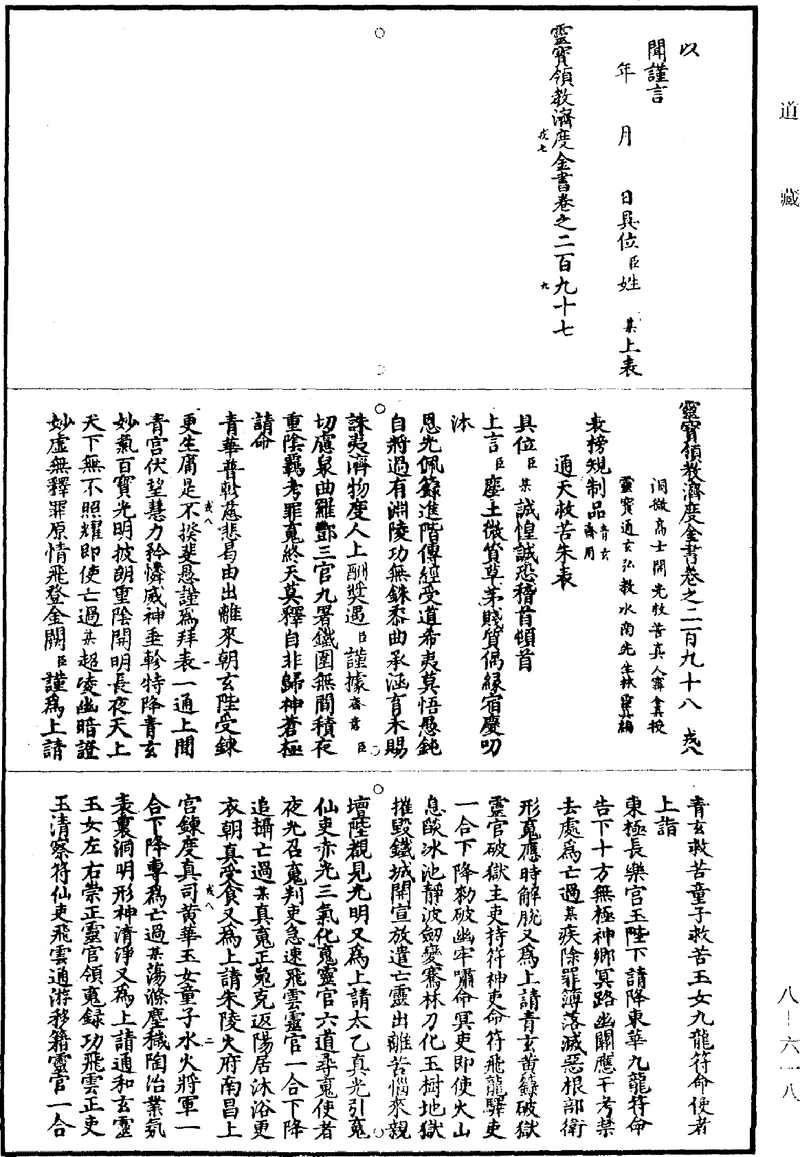 道藏
以
聞謹言
年　月　日具位臣姓　某上表
靈寶領教濟度金書卷之二百九十七
戎七　九
靈寶領教濟度金書卷之二百九十八　戎八
洞微高士開光救苦真人甯全真授
靈寶通玄弘教水南先生林靈真編
表榜規制品青玄齋用
通天救苦朱表
具位臣某誠惶誠恐稽首頓首
上言臣塵土微質草茅賤質偶緣宿慶叨
沐
恩光佩籙進階傳經受道希夷莫悟愚鈍
自將過有淵陵功無銖黍曲承涵育未賜
誅夷濟物度人上酬獎遇臣謹據齋意臣
切慮泉曲羅酆三官九署鐵圍無間積夜
重陰羈考罪魂終天莫釋自非歸神蒼極
請命
青華普軫慈悲曷由出離來朝玄陛受鍊
更生臣是不揆斐愚謹為拜表一通上聞
戎八　一
青宮伏望慧力矜憐威神垂軫特降青玄
妙氣百寶光明披朗重陰開明長夜天上
天下無不照耀即使亡過某超凌幽暗證
妙虛無釋罪原情飛登金闕臣謹為上請
青玄救苦童子救苦玉女九龍符命使者
上詣
東極長樂宮玉陛下請降東華九龍符命
告下十方無極神鄉冥路幽關應干考禁
去處為亡過某疾除罪簿落滅惡根部衛
形魂應時解脫又為上請青玄黃籙破獄
靈官破獄主吏持符神吏命符飛龍驛吏
一合下降勑破幽牢嘯命冥吏即使火山
息燄冰池靜波劒變騫林刀化玉樹地獄
摧毀鐵城開宣放遣亡靈出離苦惱來親
壇陛覩見光明又為上請太乙真光引魂
仙吏赤光三氣化魂靈官六道尋魂使者
夜光召魂判吏急速飛雲靈官一合下降
追攝亡過某真魂正魄克返陽居沐浴更
衣朝真受食又為上請朱陵火府南昌上
戎八　二
宮鍊度真司黃華玉女童子水火將軍一
合下降專為亡過某蕩滌塵穢陶冶業氛
表裏洞明形神清淨又為上請通和玄靈
玉女左右崇正靈官領魂錄功飛雲正吏
玉清察符仙吏飛雲通游移籍靈官一合
八－六一八